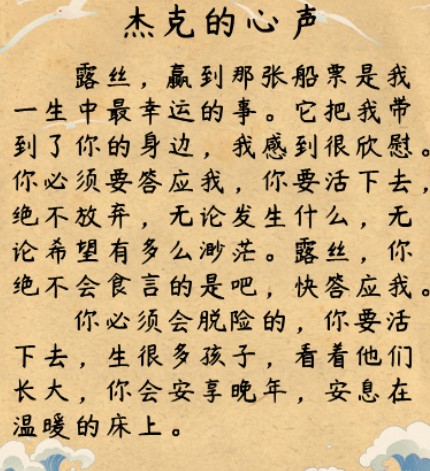 杰克的心声
露丝，赢到那张船票是我
一生中最幸运的事。它把我带
到了你的身边，我感到很欣慰。
你必须要答应我，你要活下去，
绝不放弃，无论发生什么，无
论希望有多么渺茫。露丝，你
绝不会食言的是吧，快答应我。
你必须会脱险的，你要活
下去，生很多孩子，看着他们
长大，你会安享晚年，安息在
温暖的床上。